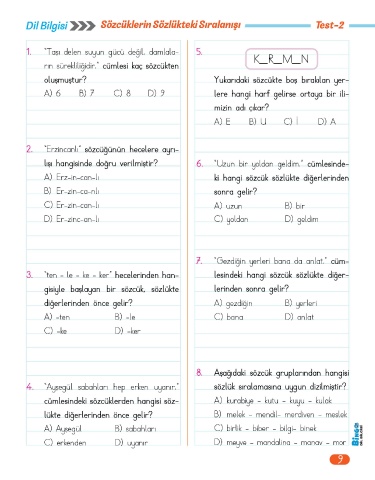 Dil Bilgisi
Sözcüklerin Sözlükteki Sıralanışı
Test-2
1. "Taşı delen suyun gücü değil, damlala-
rın sürekliliğidir." cümlesi kaç sözcükten
oluşmuştur?
A) 6 B) 7 C) 8 D) 9
2. "Erzincanlı" sözcüğünün hecelere ayrı-
lışı hangisinde doğru verilmiştir?
A) Erz-in-can-lı
B) Er-zin-ca-nlı
C) Er-zin-can-lı
D) Er-zinc-an-lı
3. "ten - le - ke - ker" hecelerinden han-
gisiyle başlayan bir sözcük, sözlükte
diğerlerinden önce gelir?
A) -ten B) -le
C) -ke D) -ker
4. "Ayşegül sabahları hep erken uyanır."
cümlesindeki sözcüklerden hangisi söz-
lükte diğerlerinden önce gelir?
A) Ayşegül B) sabahları
C) erkenden D) uyanır
5.
K_R_M_N
Yukarıdaki sözcükte boş bırakılan yer-
lere hangi harf gelirse ortaya bir ili-
mizin adı çıkar?
A) E B) U C) I D) A
6. "Uzun bir yoldan geldim." cümlesinde-
ki hangi sözcük sözlükte diğerlerinden
sonra gelir?
A) uzun B) bir
C) yoldan D) geldim
7. "Gezdiğin yerleri bana da anlat." cüm-
lesindeki hangi sözcük sözlükte diğer-
lerinden sonra gelir?
A) gezdiğin B) yerleri
C) bana D) anlat
8. Aşağıdaki sözcük gruplarından hangisi
sözlük sıralamasına uygun dizilmiştir?
A) kurabiye - kutu - kuyu - kulak
B) melek - mendil- merdiven - meslek
C) birlik - biber - bilgi- binek
D) meyve - mandalina - manav - mor
9